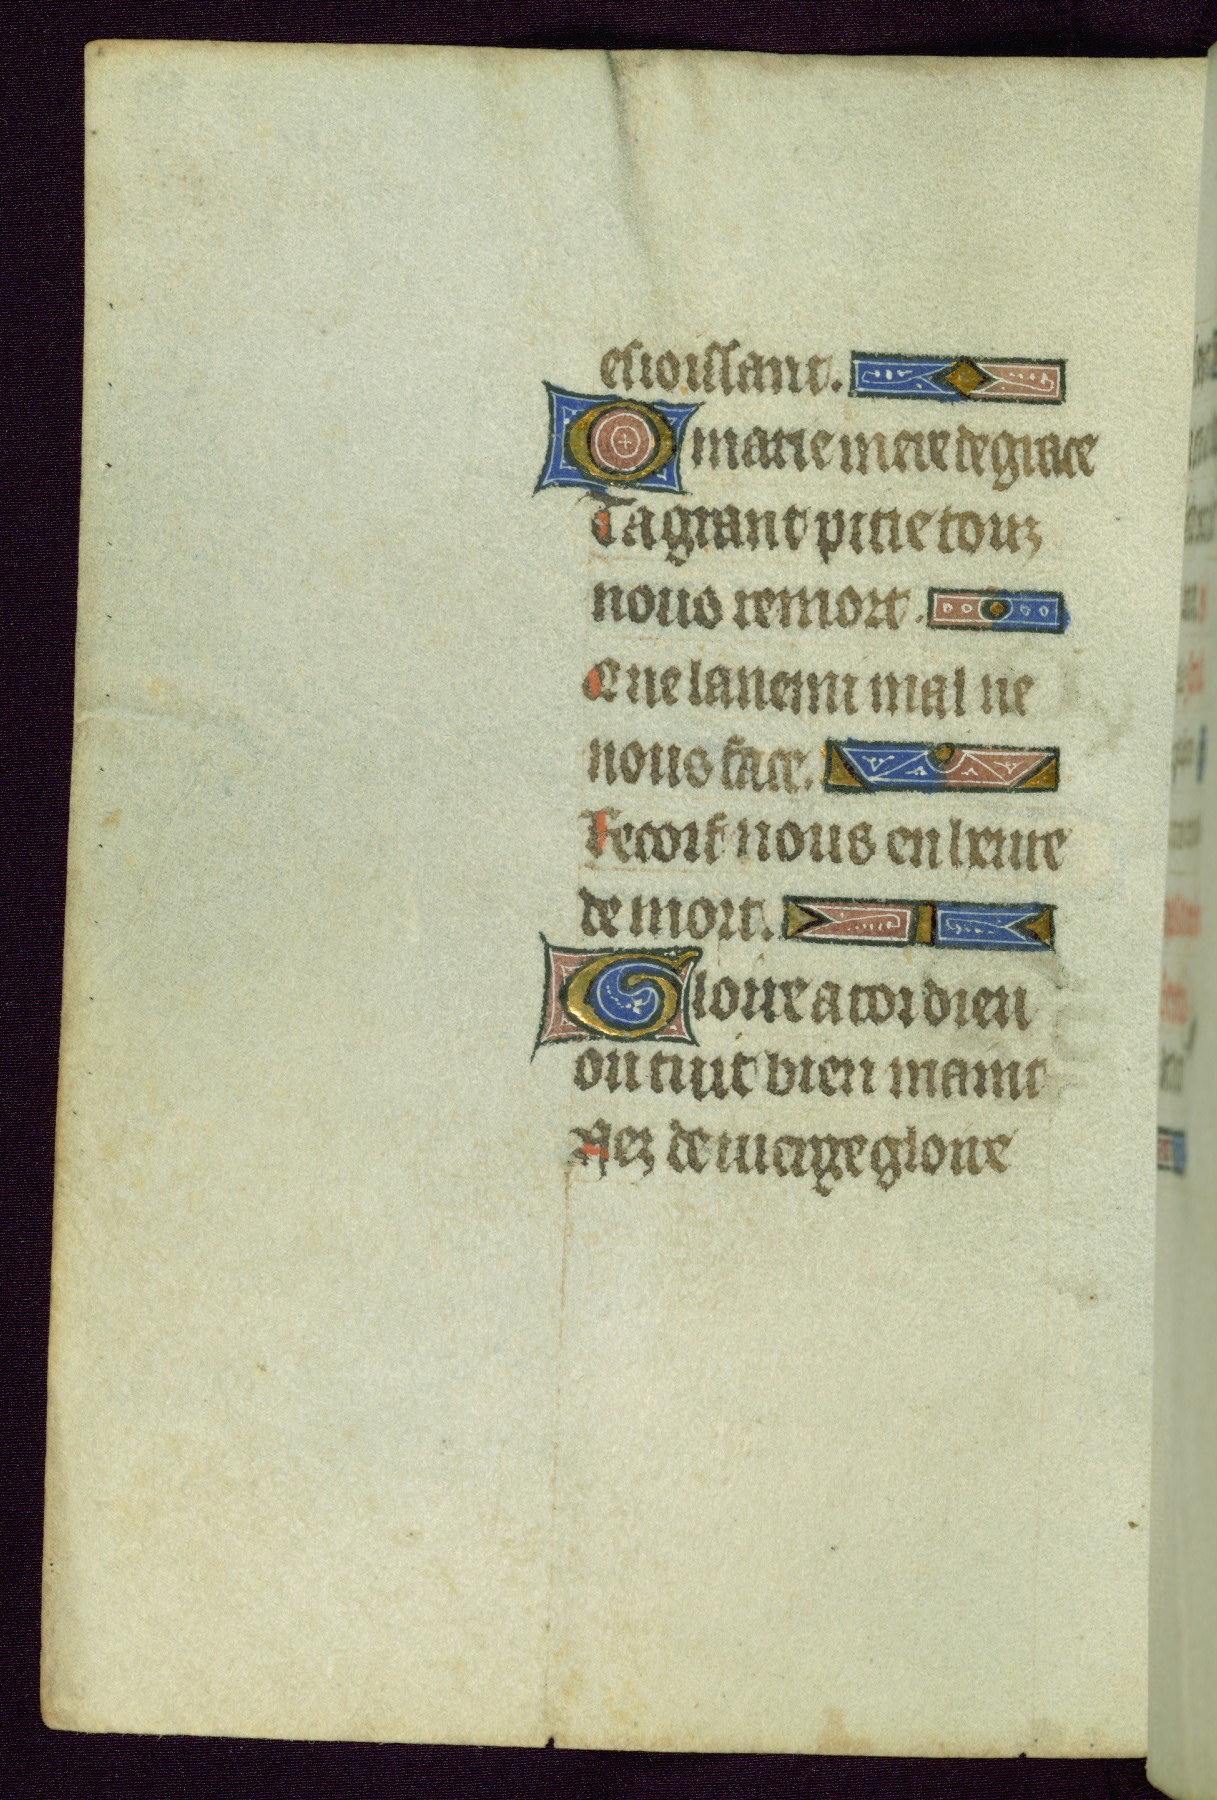 esioissant.
O marie mere de grace
Ta grant pitie touz
nous remort.
Que lanemi mal ne
nous face.
Recoif nous en leure
de mort.
Gloire a toi dieu
ou tuit bien maint
Nez de uierge gloire